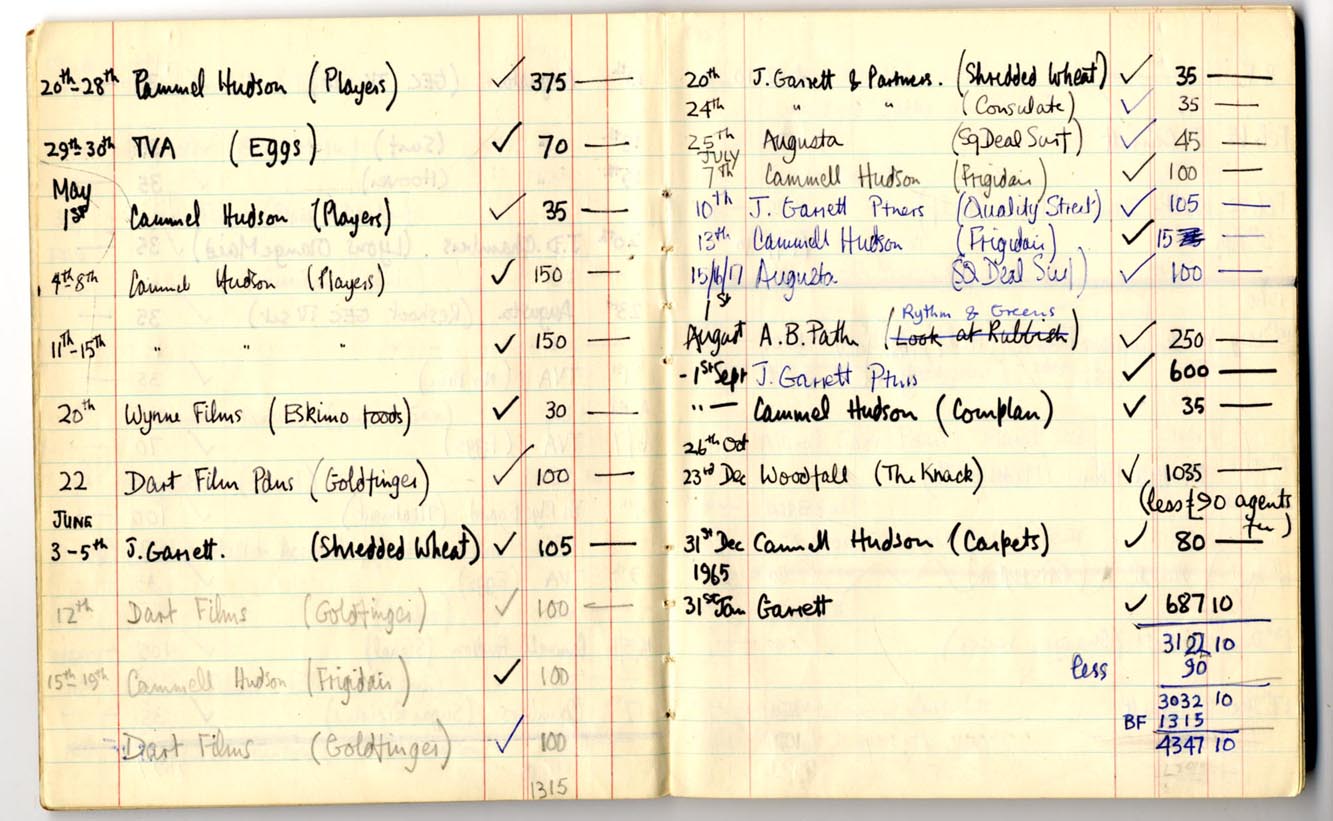 20th-28th Cammel Hudson (Players) ✓ 375 —
29th-30th TVA (Eggs) ✓ 70 —
May
1st Cammel Hudson (Players) ✓ 35 —
4th-8th Cammel Hudson (Players) ✓ 150 —
11th-15th " " " ✓ 150 —
20th Wynne Films (Eskimo foods) ✓ 30 —
22 Dart Film Pdns (Goldfinger) ✓ 100 —
JUNE
3-5th J. Garrett. (Shredded Wheat) ✓ 105 —
12th Dart Films (Goldfinger) ✓ 100 —
15th-19th Cammell Hudson (Frigidair) ✓ 100
Dart Films (Goldfinger) ✓ 100
1315
20th J. Garrett & Partners. (Shredded Wheat) ✓ 35 —
24th " " (Consulate) ✓ 35 —
25th Augusta (Sq Deal Surf) ✓ 45 —
JULY
7th Cammell Hudson (Frigidair) ✓ 100 —
10th J. Garrett Ptners (Quality Street) ✓ 105 —
13th Cammell Hudson (Frigidair) ✓ 15 —
15/16/17 Augusta (SQ Deal Surf) ✓ 100 —
1st Rythm & Greens
August A.B. Pathe (Look at Rubbish) ✓ 250 —
-1st Sept J. Garrett Ptnrs ✓ 600 —
" — Cammel Hudson (Complan) ✓ 35 —
26th Oct
23rd Dec Woodfall (The Knack) ✓ 1035 —
(less £90 agents
fee)
31st Dec Cammell Hudson (Carpets) ✓ 80 —
1965
31st Jan Garrett ✓ 687 10
3122 10
less 90
3032 10
BF 1315
4347 10